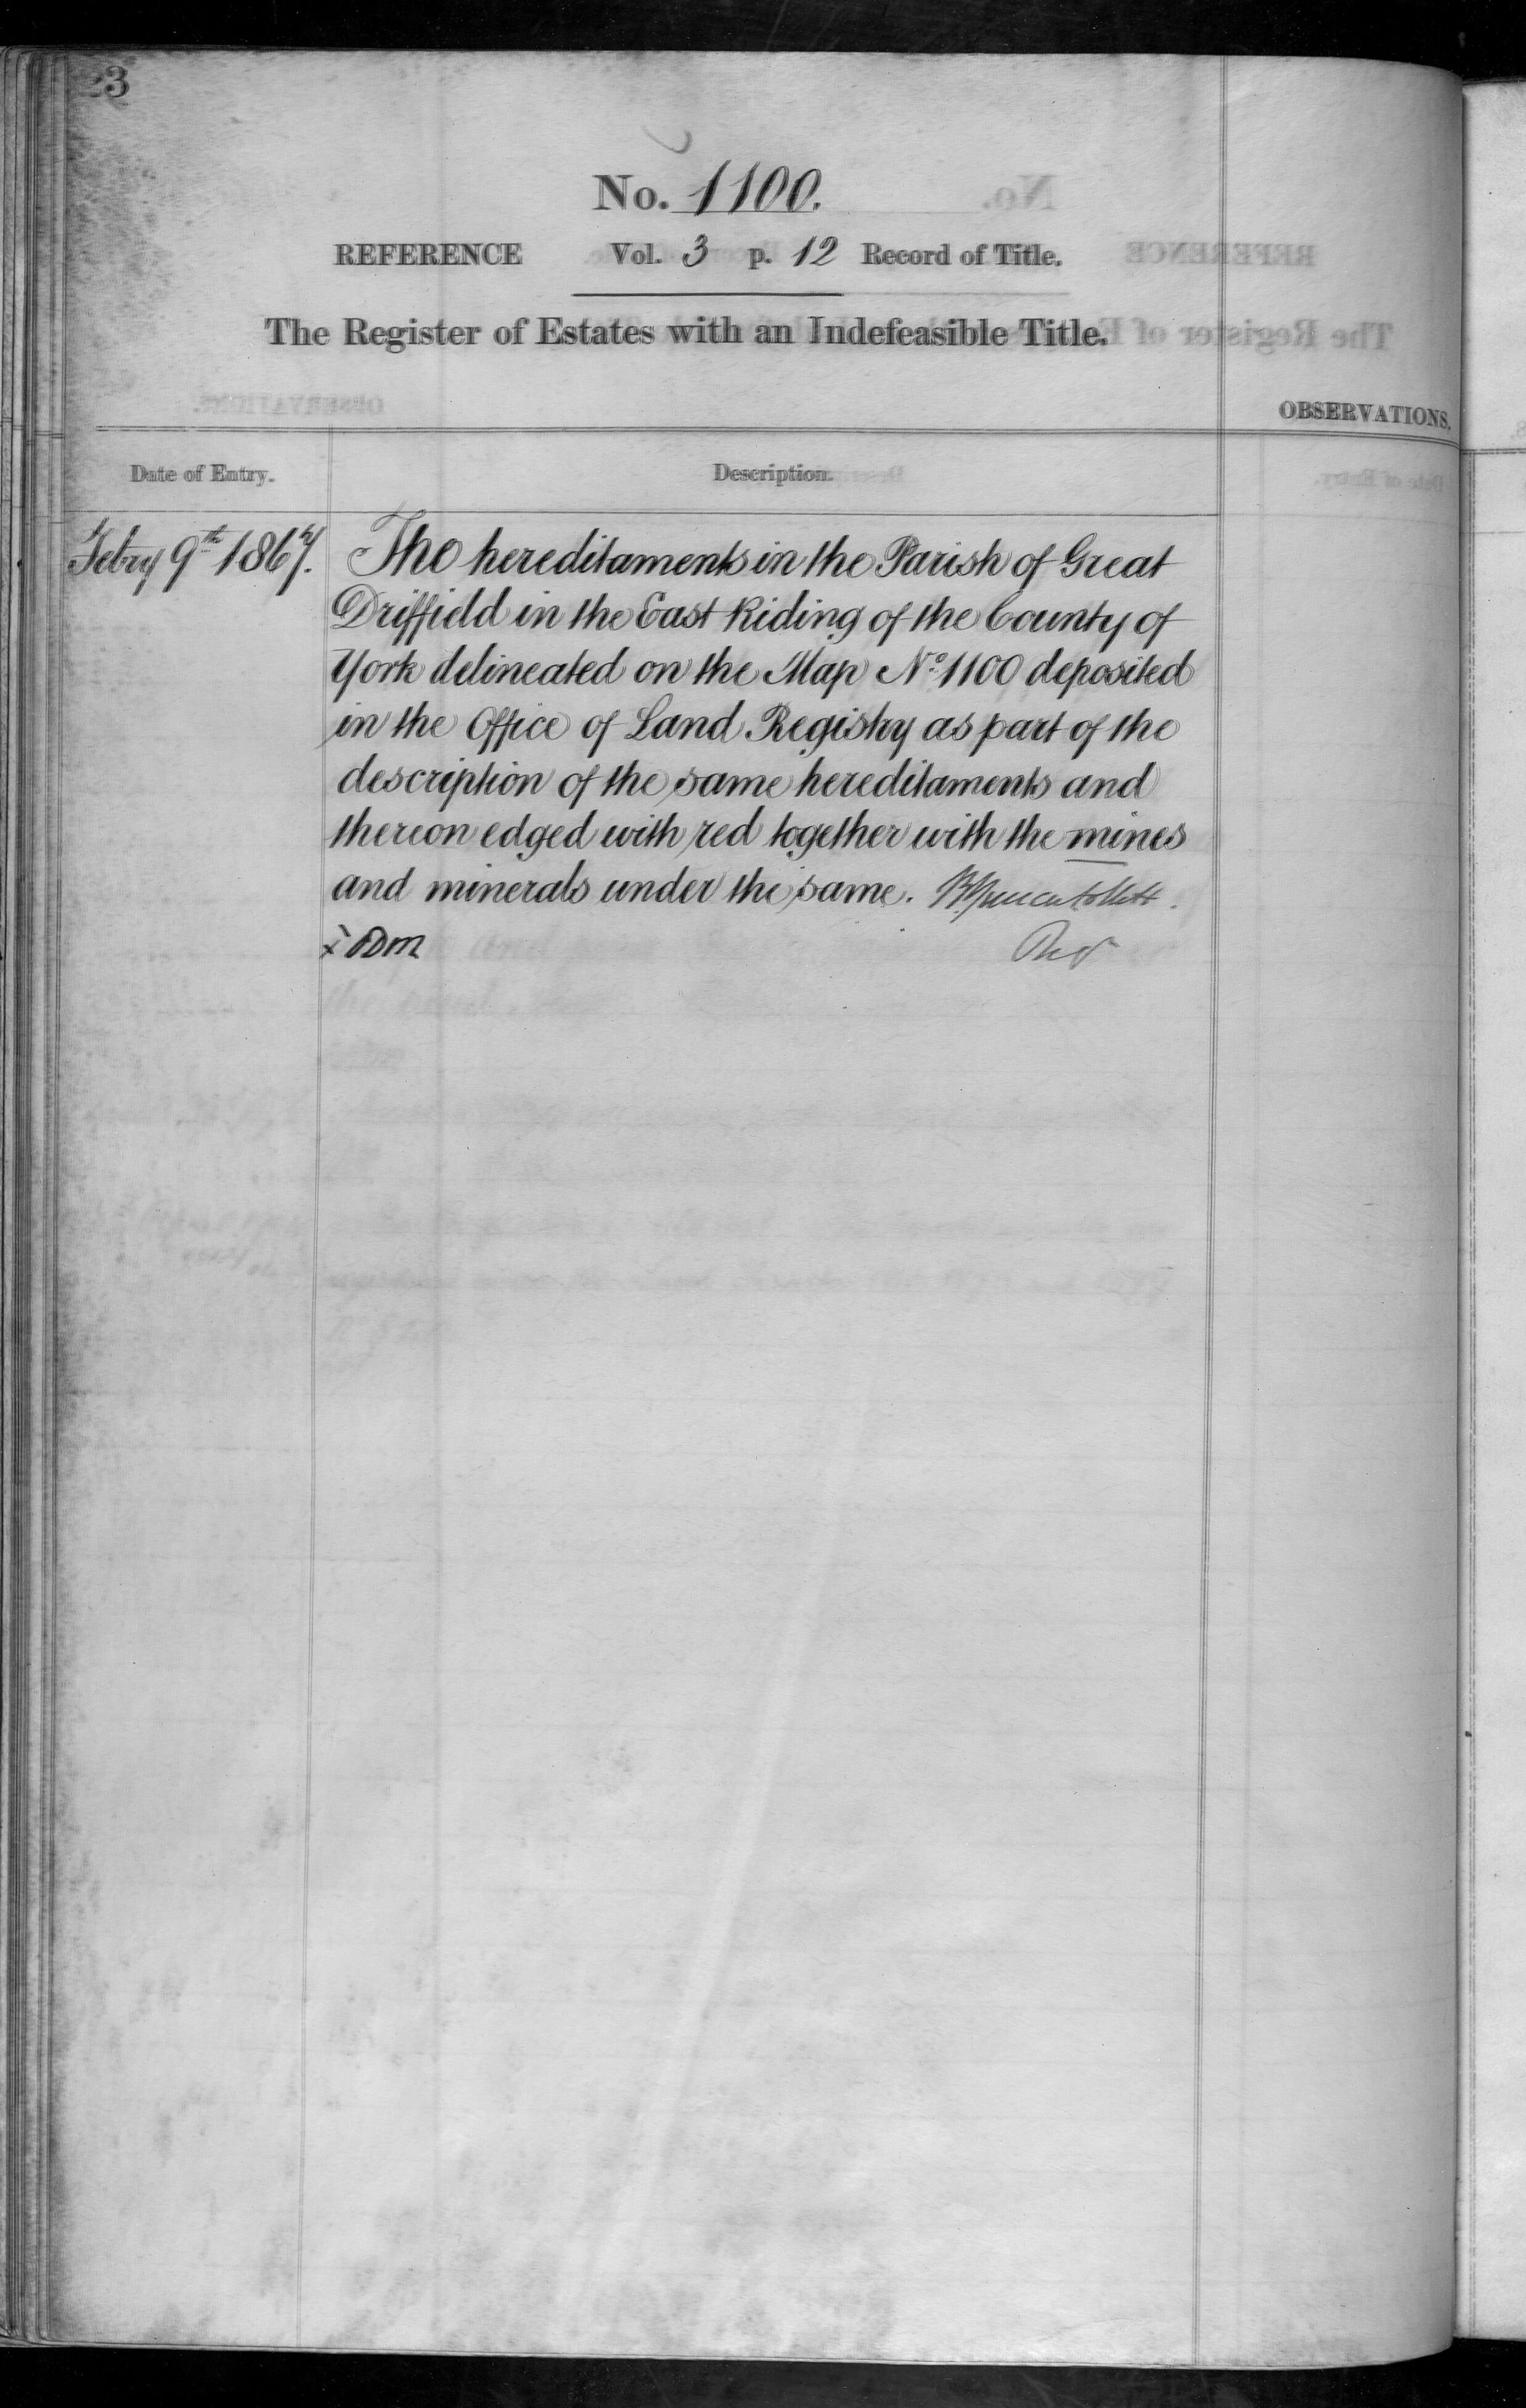 23
No. 1100.
REFERENCE Vol. 3 p. 12 Record of Title.
The Register of Estates with an Indefeasible Title.
OBSERVATIONS.
Date of Entry.
Description.
Febry 9th 1867.
The hereditaments in the Parish of Great
Driffield in the East Riding of the County of
York delineated on the Map No. 1100 deposited
in the Office of Land Registry as part of the
description of the same hereditaments and
thereon edged with red together with the mines
and minerals under the same.